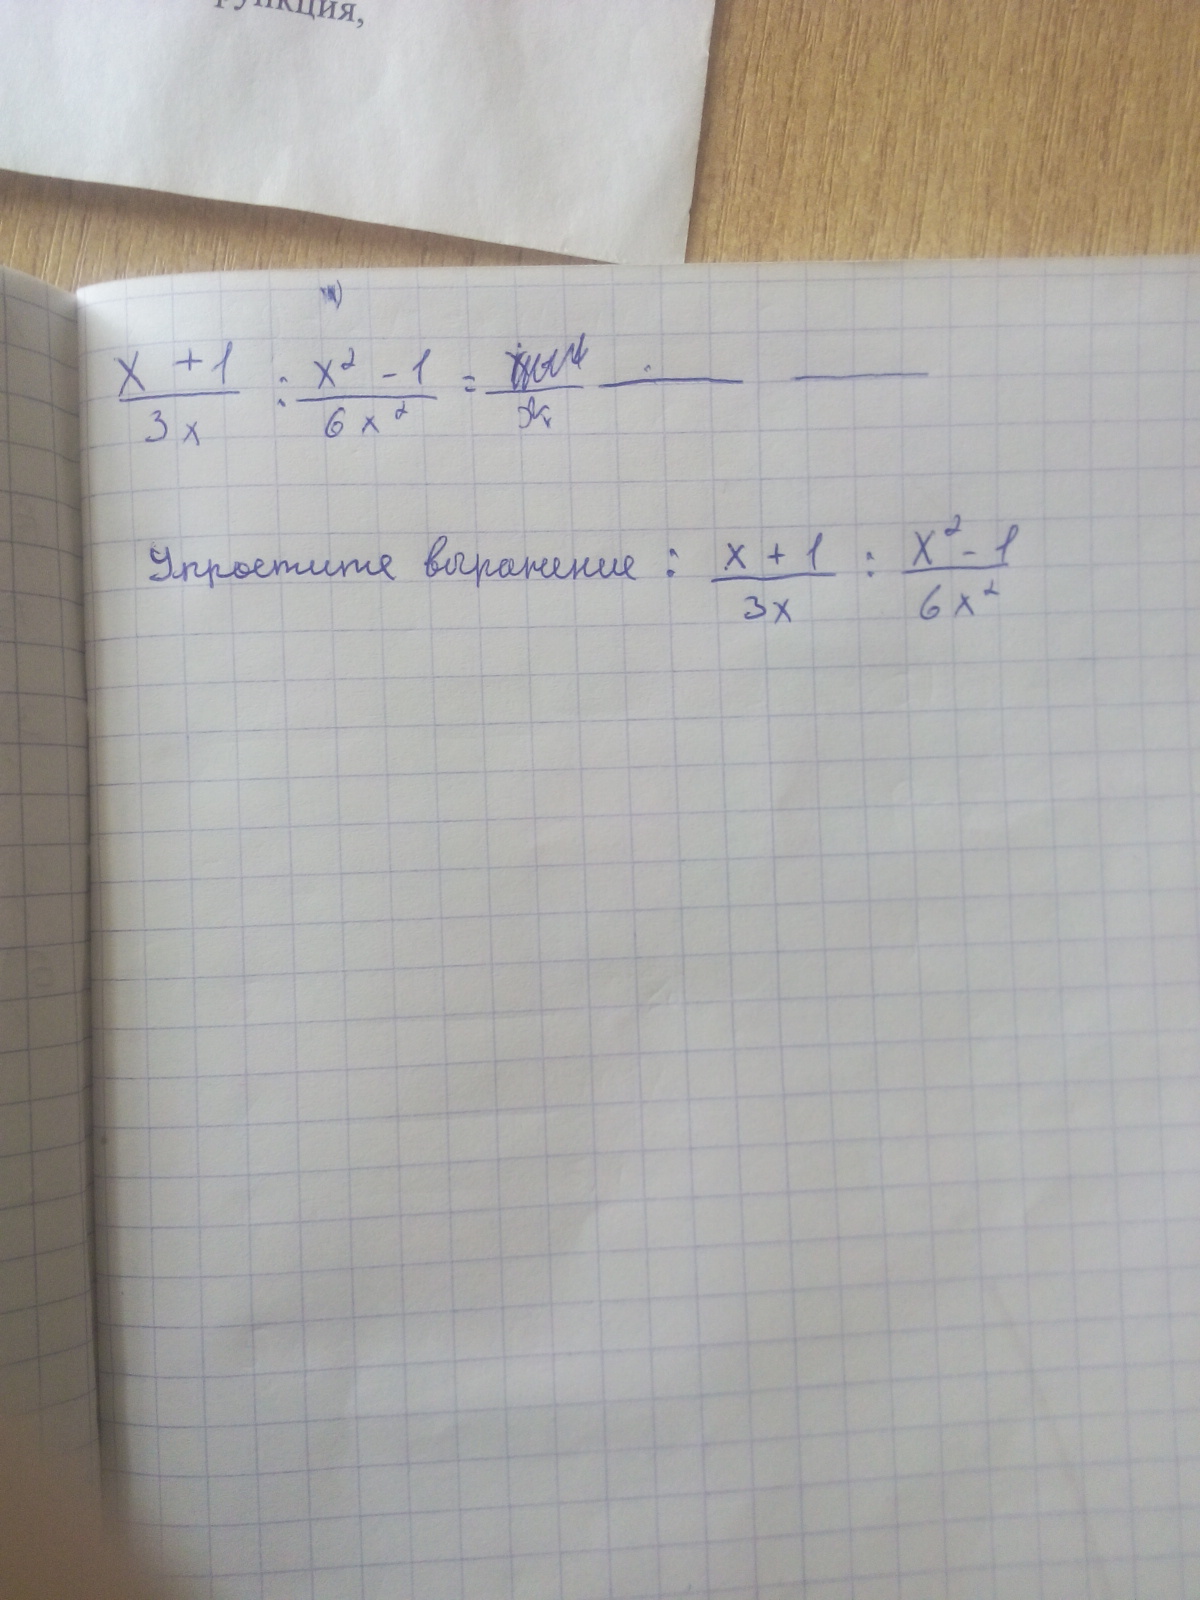 x + 1 / 3x : x² - 1 / 6x² =
Упростите выражение : x + 1 / 3x : x² - 1 / 6x²